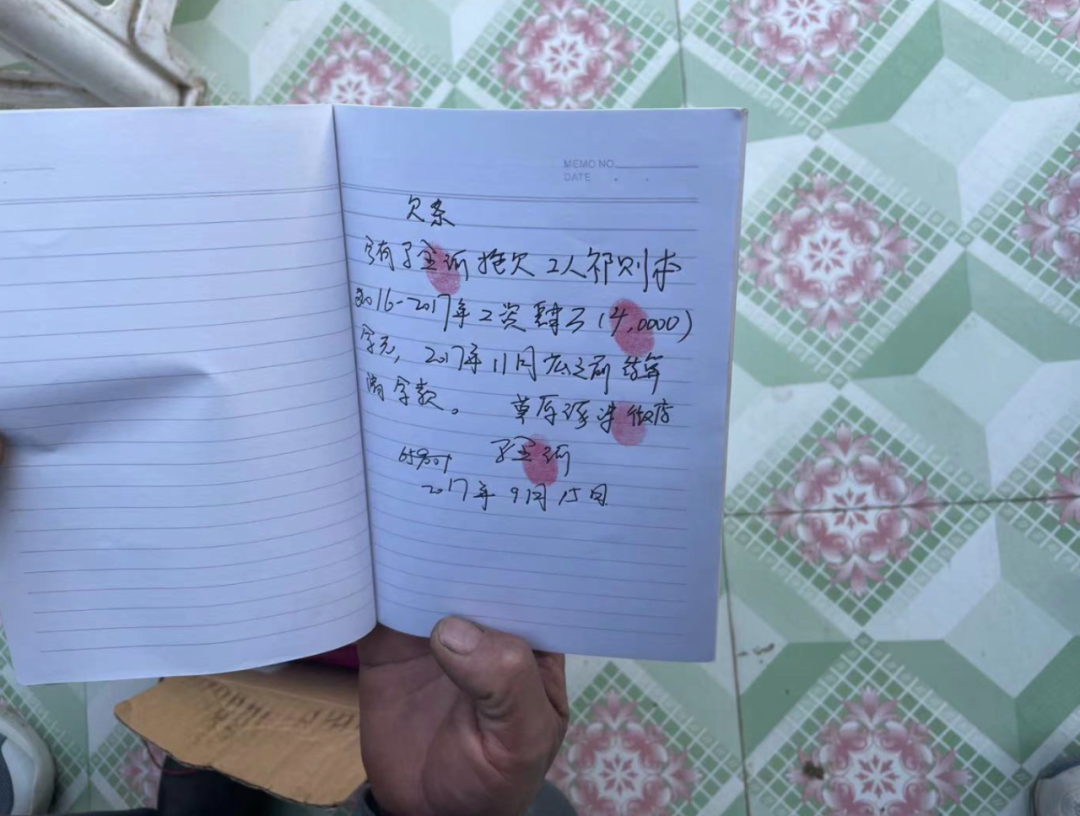 MEMO NO.
DATE
欠条
今有丁金河拖欠工人祁则本
2016-2017年工资肆万(4,0000)
元, 2017年11月底之前结算
清欠款。 草原涿涮饭店
丁金河
2017年9月15日